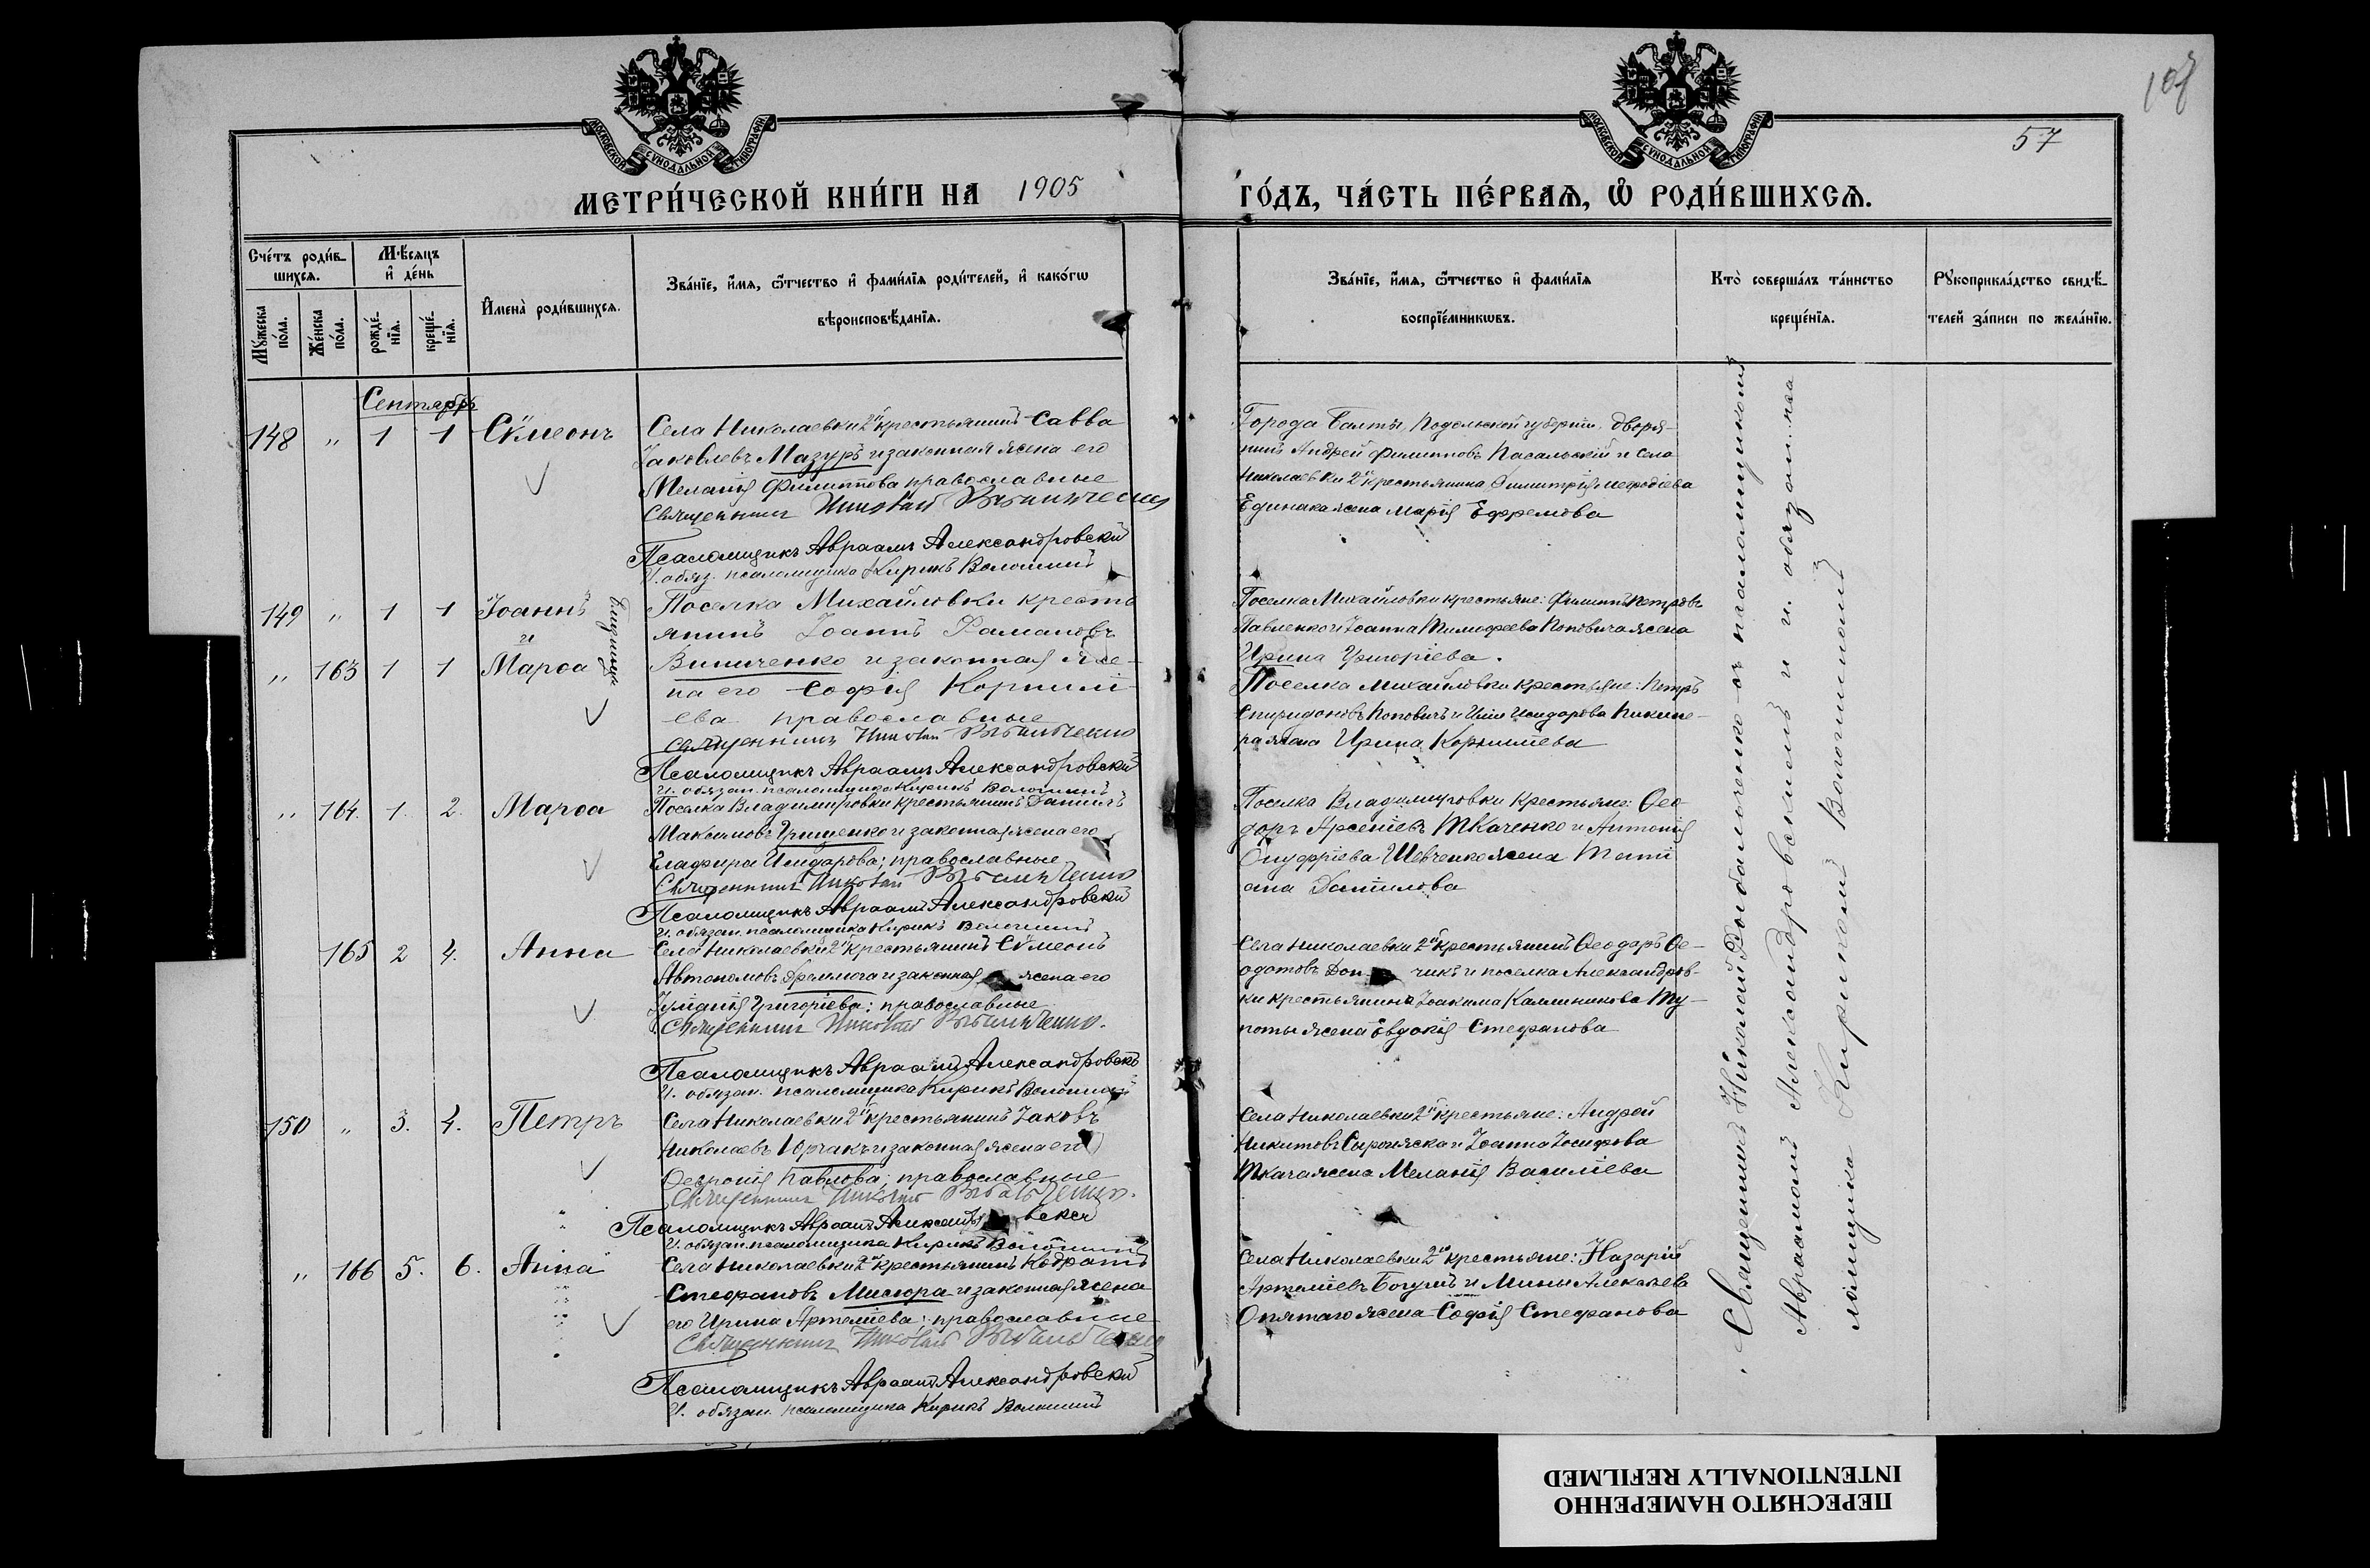 107
57
МОСКОВСКОЙ СѴНОДАЛЬНОЙ ТИПОГРАФІИ
МОСКОВСКОЙ СѴНОДАЛЬНОЙ ТИПОГРАФІИ
МЕТРИ́ЧЕСКОЙ КНИ́ГИ НА 1905
ГО́ДЪ, ЧА́СТЬ ПЕ́РВАѦ, Ѽ РОДИ́ВШИХСѦ.
Сче́тъ роди́вшихсѧ.
Му́жеска по́ла.
Же́нска по́ла.
Мѣ́сѧцъ и҆ де́нь
рожде́нїѧ.
креще́нїѧ.
И҆мена̀ роди́вшихсѧ.
Зва́нїе, и҆́мѧ, ѻ҆́тчество и҆ фами́лїѧ роди́телей, и҆ како́гѡ
вѣроисповѣ́данїѧ.
Зва́нїе, и҆́мѧ, ѻ҆́тчество и҆ фами́лїѧ
воспрїе́мникѡвъ.
Кто̀ соверша́лъ та́инство
креще́нїѧ.
Рꙋкоприкла́дство свидѣ́-
телей за́писи по жела́нїю.
Сентябрь
148 " 1 1 Сѵмеонъ
Села Николаевки 2й крестьянинъ Савва
Іаковлевъ Мазуръ и законная жена его
Меланія Филиппова православные
Священникъ Николай Рыбальченко
Псаломщикъ Авраамъ Александровскій
И. обяз. псаломщика Кирикъ Волошинъ
Города Балты, Подольской губерніи, дворя-
нинъ Андрей Филипповъ Пасальскій и села
Николаевки 2й крестьянина Димитрія Меѳодіева
Единака жена Марія Ефремова
149 " 1 1 Іоаннъ
и
" 163 1 1 Марѳа
близнецы
Поселка Михайловки кресть
янинъ Іоаннъ Романовъ
Виниченко и законная же-
на его Софія Корнилі-
ева православные
Священникъ Николай Рыбальченко
Псаломщикъ Авраамъ Александровскій
И. обязан. псаломщика Кирикъ Волошинъ
Поселка Михайловки крестьяне: Филиппъ Петровъ
Павленко и Іоанна Тимофеева Поповича жена
Ирина Григоріева.
Поселка Михайловки крестьяне: Петръ
Спиридоновъ Поповичъ и Исидорова
жена Ирина Корниліева
" 164. 1. 2. Марѳа
Поселка Владимировки крестьянинъ Даніилъ
Максимовъ Грищенко и законная жена его
Глафира Исидорова; православные
Священникъ Николай Рыбальченко
Псаломщикъ Авраамъ Александровскій
И. обязан. псаломщика Кирикъ Волошинъ
Поселка Владимировки крестьяне: Ѳео-
доръ Арсеніевъ Ткаченко и Антонія
Онуфріева Шевченко жена Тати
ана Даніилова
165 2 4. Анна
Села Николаевки 2й крестьянинъ Сѵмеонъ
Автономовъ и законная жена его
Іуліанія Григоріева; православные
Священникъ Николай Рыбальченко.
Псаломщикъ Авраамъ Александровскій
И. обязан. псаломщика Кирикъ Волошинъ
Села Николаевки 2й крестьянинъ Ѳеодоръ Ѳе-
одотовъ и поселка Александров-
ки крестьянина Іоакима Каллиникова Ту-
поты жена Евдокія Стефанова
150 " 3. 4. Петръ
Села Николаевки 2й крестьянинъ Іаковъ
Николаевъ Юрчакъ и законная жена его
Ѳевронія Павлова, православные
Священникъ Николай Рыбальченко.
Псаломщикъ Авраамъ Александровскій
И. обязан. псаломщика Кирикъ Волошинъ
Села Николаевки 2й крестьяне: Андрей
Никитовъ и Іоанна Іосифова
Ткача жена Меланія Василіева
" 166 5. 6. Анна
Села Николаевки 2й крестьянинъ Кодратъ
Стефановъ Мисюра и законная жена
его Ирина Артеміева; православные
Священникъ Николай Рыбальченко
Псаломщикъ Авраамъ Александровскій
И. обязан. псаломщика Кирикъ Волошинъ
Села Николаевки 2й крестьяне: Назарій
Артеміевъ и Мины Алексѣева
Опятаго жена Софія Стефанова
Священникъ Николай Рыбальченко съ псаломщикомъ
Авраамомъ Александровскимъ и и. обязан. пса
ломщика Кирикомъ Волошинымъ
ПЕРЕСНЯТО НАМЕРЕННО
INTENTIONALLY REFILMED